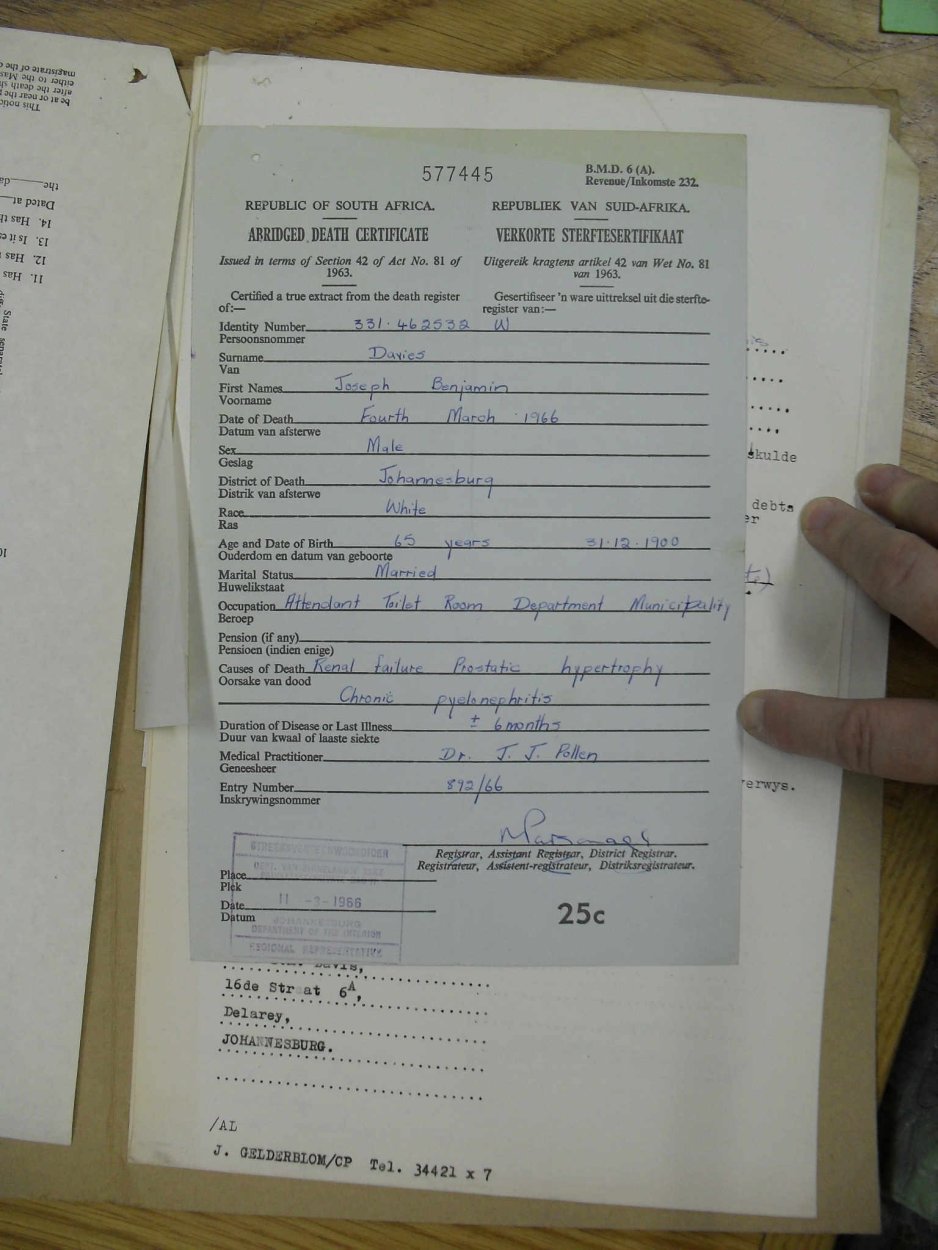 577445
B.M.D. 6 (A).
Revenue/Inkomste 232.
REPUBLIC OF SOUTH AFRICA.
REPUBLIEK VAN SUID-AFRIKA.
ABRIDGED DEATH CERTIFICATE
VERKORTE STERFTESERTIFIKAAT
Issued in terms of Section 42 of Act No. 81 of
1963.
Uitgereik kragtens artikel 42 van Wet No. 81
van 1963.
Certified a true extract from the death register
of:—
Gesertifiseer 'n ware uittreksel uit die sterfte-
register van:—
Identity Number 331·462532 W
Persoonsnommer
Surname Davies
Van
First Names Joseph Benjamin
Voorname
Date of Death Fourth March 1966
Datum van afsterwe
Sex Male
Geslag
District of Death Johannesburg
Distrik van afsterwe
Race White
Ras
Age and Date of Birth 65 years 31·12·1900
Ouderdom en datum van geboorte
Marital Status Married
Huwelikstaat
Occupation Attendant Toilet Room Department Municipality
Beroep
Pension (if any)
Pensioen (indien enige)
Causes of Death Renal failure Prostatic hypertrophy
Oorsake van dood
Chronic pyelonephritis
Duration of Disease or Last Illness ± 6 months
Duur van kwaal of laaste siekte
Medical Practitioner Dr. J. J. Pollen
Geneesheer
Entry Number 892/66
Inskrywingsnommer
Registrar, Assistant Registrar, District Registrar.
Registrateur, Assistent-registrateur, Distriksregistrateur.
Place
Plek
Date 11 -3-1966
Datum
JOHANNESBURG
DEPARTMENT OF THE INTERIOR
REGIONAL REPRESENTATIVE
25c
skulde
debts
er
erwys.
Davis,
16de Straat 6A,
Delarey,
JOHANNESBURG.
/AL
J. GELDERBLOM/CP Tel. 34421 x 7
This notic
be at or near the
after the death sh
either to the Mas
magistrate of the
the da
Dated at
14. Has th
13. Is it es
12. Has
11. Has
State
separate